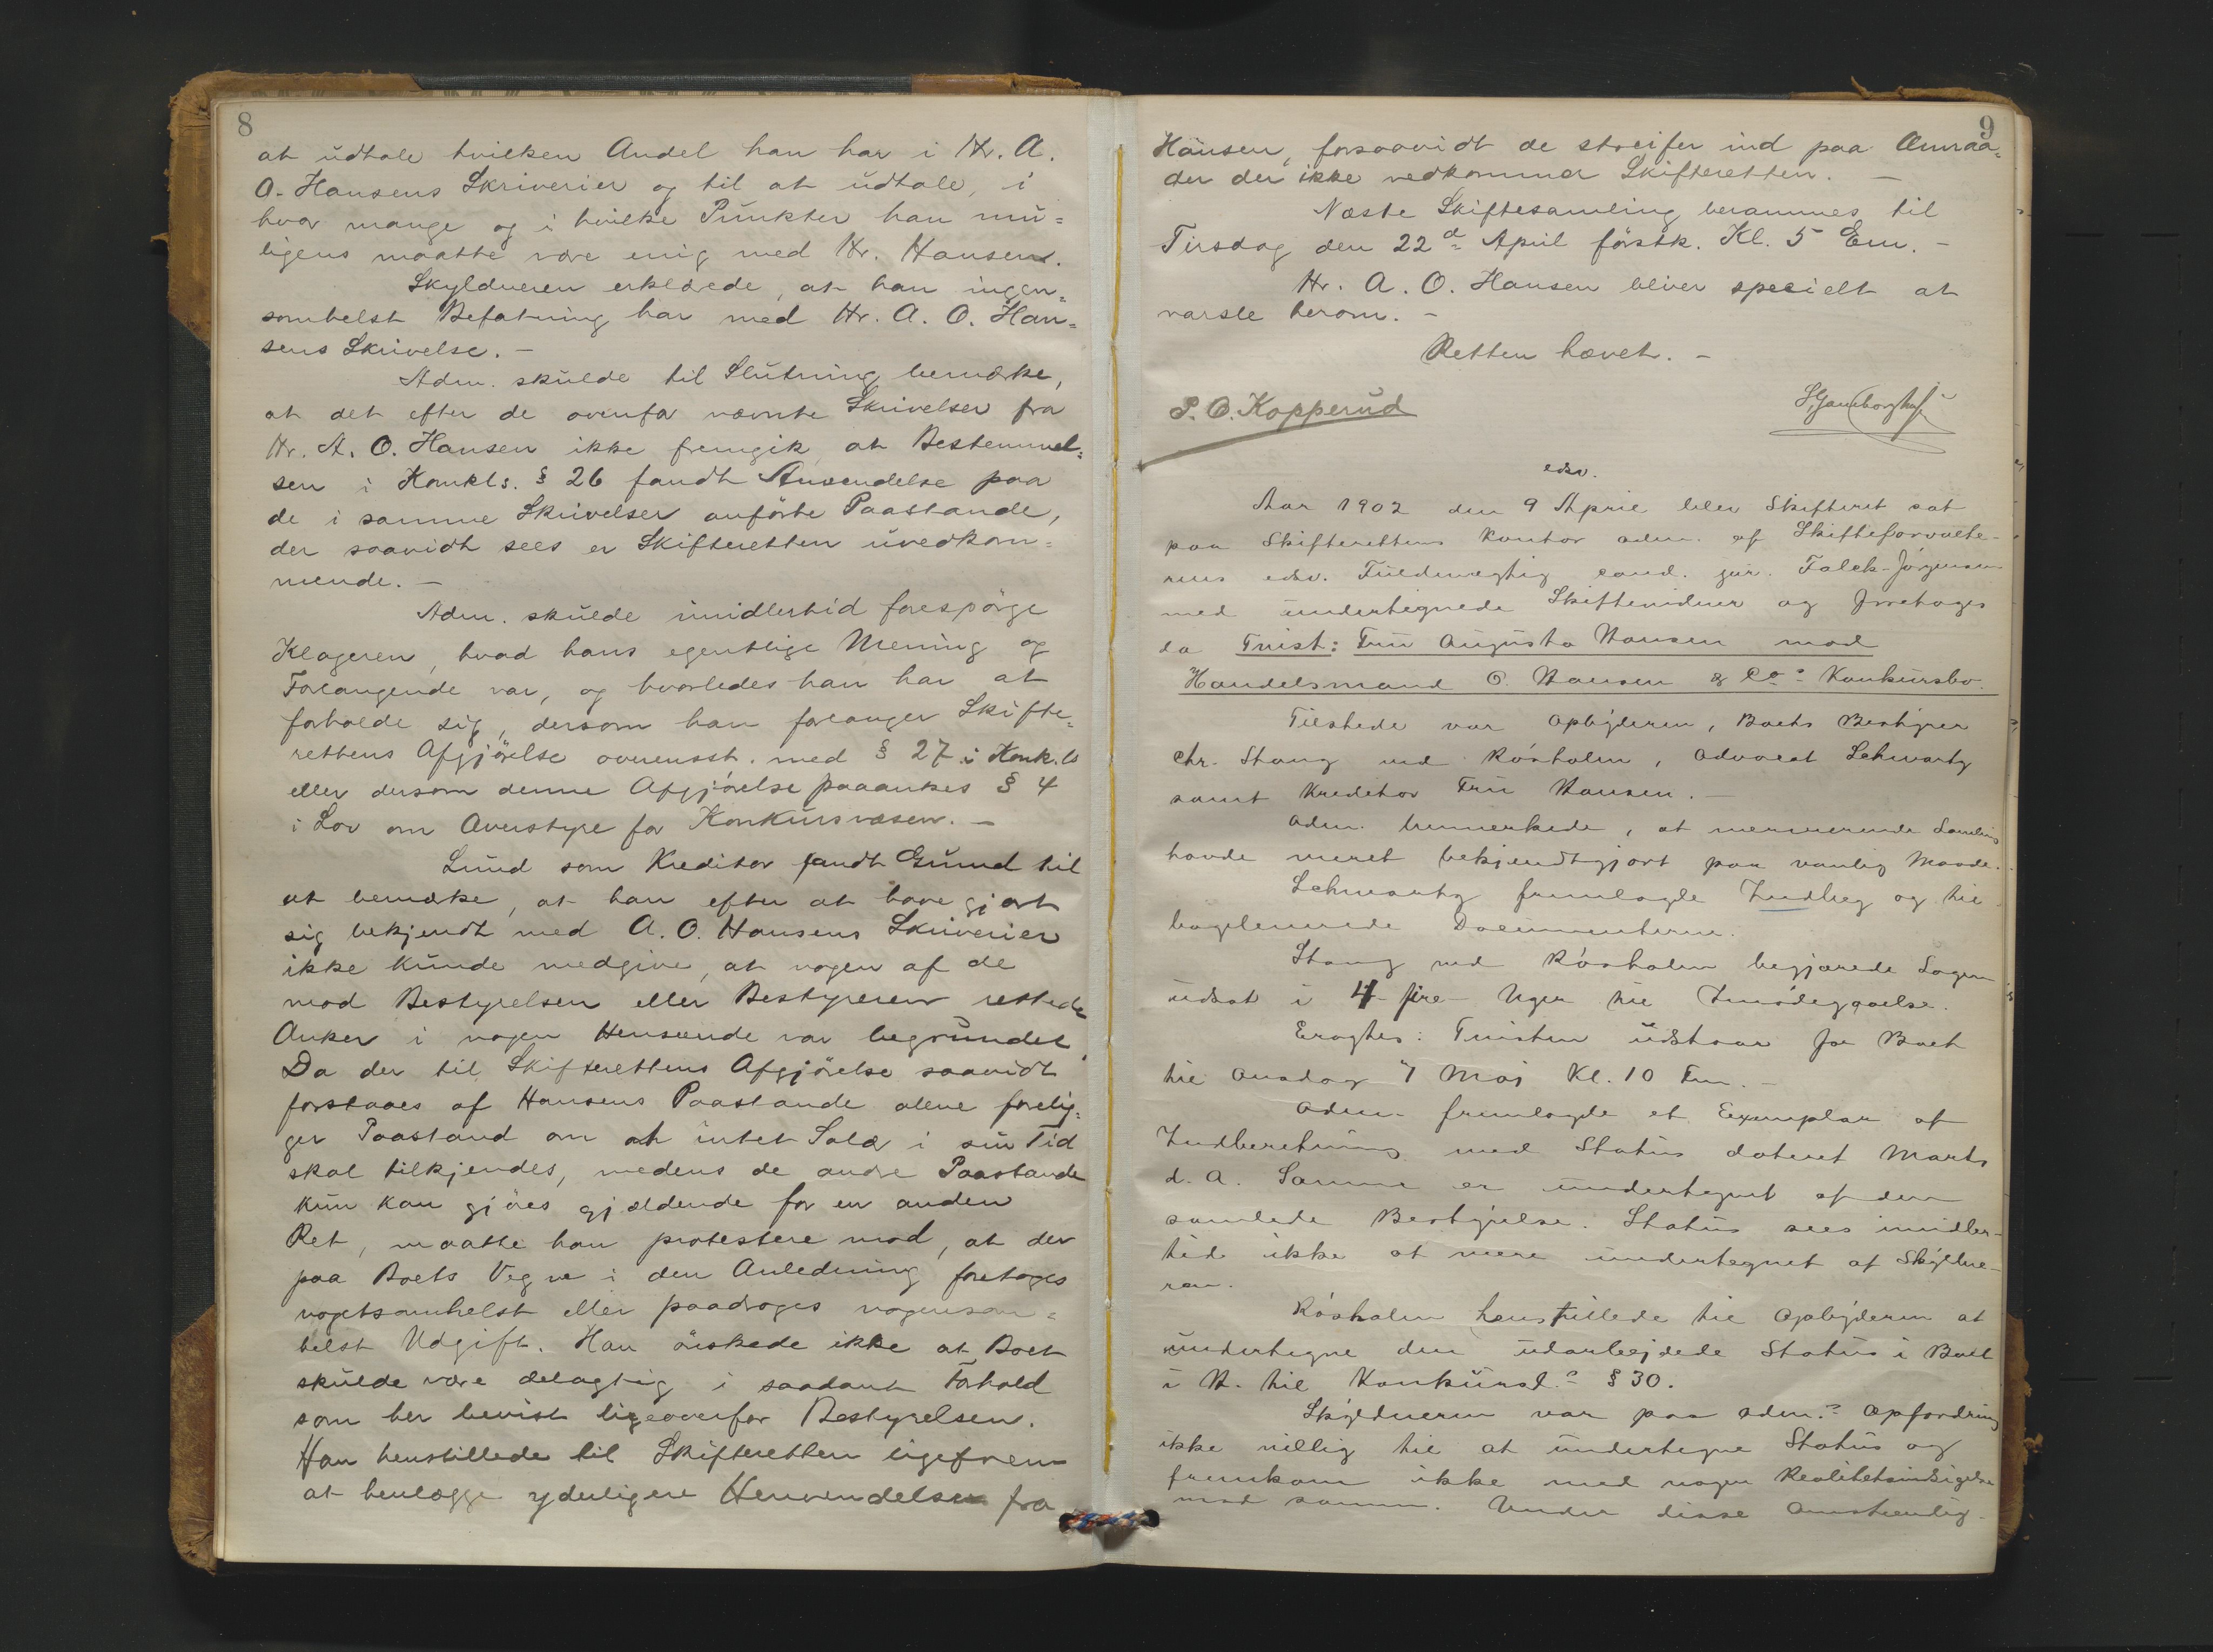 8
at udtale hvilken Andel han har i Hr. A.
O. Hansens Skriverier og til at udtale, i
hvor mange og i hvilke Punkter han mu=
ligens maatte være enig med Hr. Hansen.
Skyldneren erklærede, at han ingen=
somhelst Befatning har med Hr. A. O. Han=
sens Skrivelse. –
Adm. skulde til Slutning bemærke,
at det efter de ovenfor nævnte Skrivelser fra
Hr. A. O. Hansen ikke fremgik at Bestemmel=
sen i Konkls. § 26 fandt Anvendelse paa
de i samme Skrivelser anførte Paastande,
der saavidt sees er Skifteretten uvedkom=
mende. –
Adm. skulde imidlertid forespørge
Klageren, hvad hans egentlige Mening og
Forlangende var, og hvorledes han har at
forholde sig, dersom han forlanger Skifte=
rettens Afgjørelse overensst. med § 27 i Konk.ls
eller dersom denne Afgjørelse paaankes § 4
i Lov om Overstyre for Konkursvæsen. –
Lund som Kreditor fandt Grund til
at bemærke, at han efter at have gjort
sig bekjendt med A. O. Hansens Skriverier
ikke kunde medgive, at nogen af de
mod Bestyrelsen eller Bestyreren rettede
Anker i nogen Henseende var begrundet.
Da der til Skifterettens Afgjørelse saavidt
forstaaes af Hansens Paastande alene forelig=
ger Paastand om at intet Salær i sin Tid
skal tilkjendes, medens de andre Paastande
kun kan gjøres gjældende for en anden
Ret, maatte han protestere mod, at der
paa Boets Vegne i den Anledning foretages
nogetsomhelst eller paadrages nogensom=
helst Udgift. Han ønskede ikke at Boet
skulde være delagtig i saadant Forhold
som her bevist ligeoverfor Bestyrelsen.
Han henstillede til Skifteretten ligefrem
at henlægge yderligere Henvendelser fra
9
Hansen, forsaavidt de streifer ind paa Omraa=
der der ikke vedkommer Skifteretten. –
Næste Skiftesamling berammes til
Tirsdag den 22d April førstk. Kl. 5 Em. –
Hr. A. O. Hansen bliver specielt at
varsle herom. –
Retten hævet. –
P. O. Kopperud
edsv.
Aar 1902 den 9 April blev Skifteret sat
paa Skifterettens Kontor adm. af Skifteforvalte-
rens edsv. Fuldmægtig cand. jur. Falck-Jørgensen
med undertegnede Skiftevidner og foretoges
da Tvist: Fru Augusta Hansen mod
Handelsmand O. Hansen & Co.s Konkursbo.
Tilstede var Opbyderen, Boets Bestyrer
Chr. Stang ved Rösholm, Advocat Schwartz
samt Kreditor Fru Hansen. –
Adm. bemerkede, at nerværende Samling
havde været bekjendtgjort paa vanlig Maade.
Schwartz fremlagde Indlæg og til
bageleverede Documenterne.
Stang ved Rösholm begjærede Sagen
udsat i 4 – fire – Uger til Imødegaaelse.
Eragtes: Tvisten udstaar for Boet
til Onsdag 7 Mai Kl. 10 Fm. –
Adm. fremlagde et Exemplar af
Indberetning med Status dateret Marts
d. A. Samme er undertegnet af den
samlede Bestyrelse. Status sees imidler-
tid ikke at være undertegnet af Skyldne-
ren.
Rösholm henstillede til Opbyderen at
undertegne den udarbejdede Status i Boet
i H. til Konkursl.s § 30.
Skyldneren var paa Adm.s Opfordring
ikke villig til at undertegne Status og
fremkom ikke med nogen Realitetsindsigelse
mod samme. Under disse Omstendig-